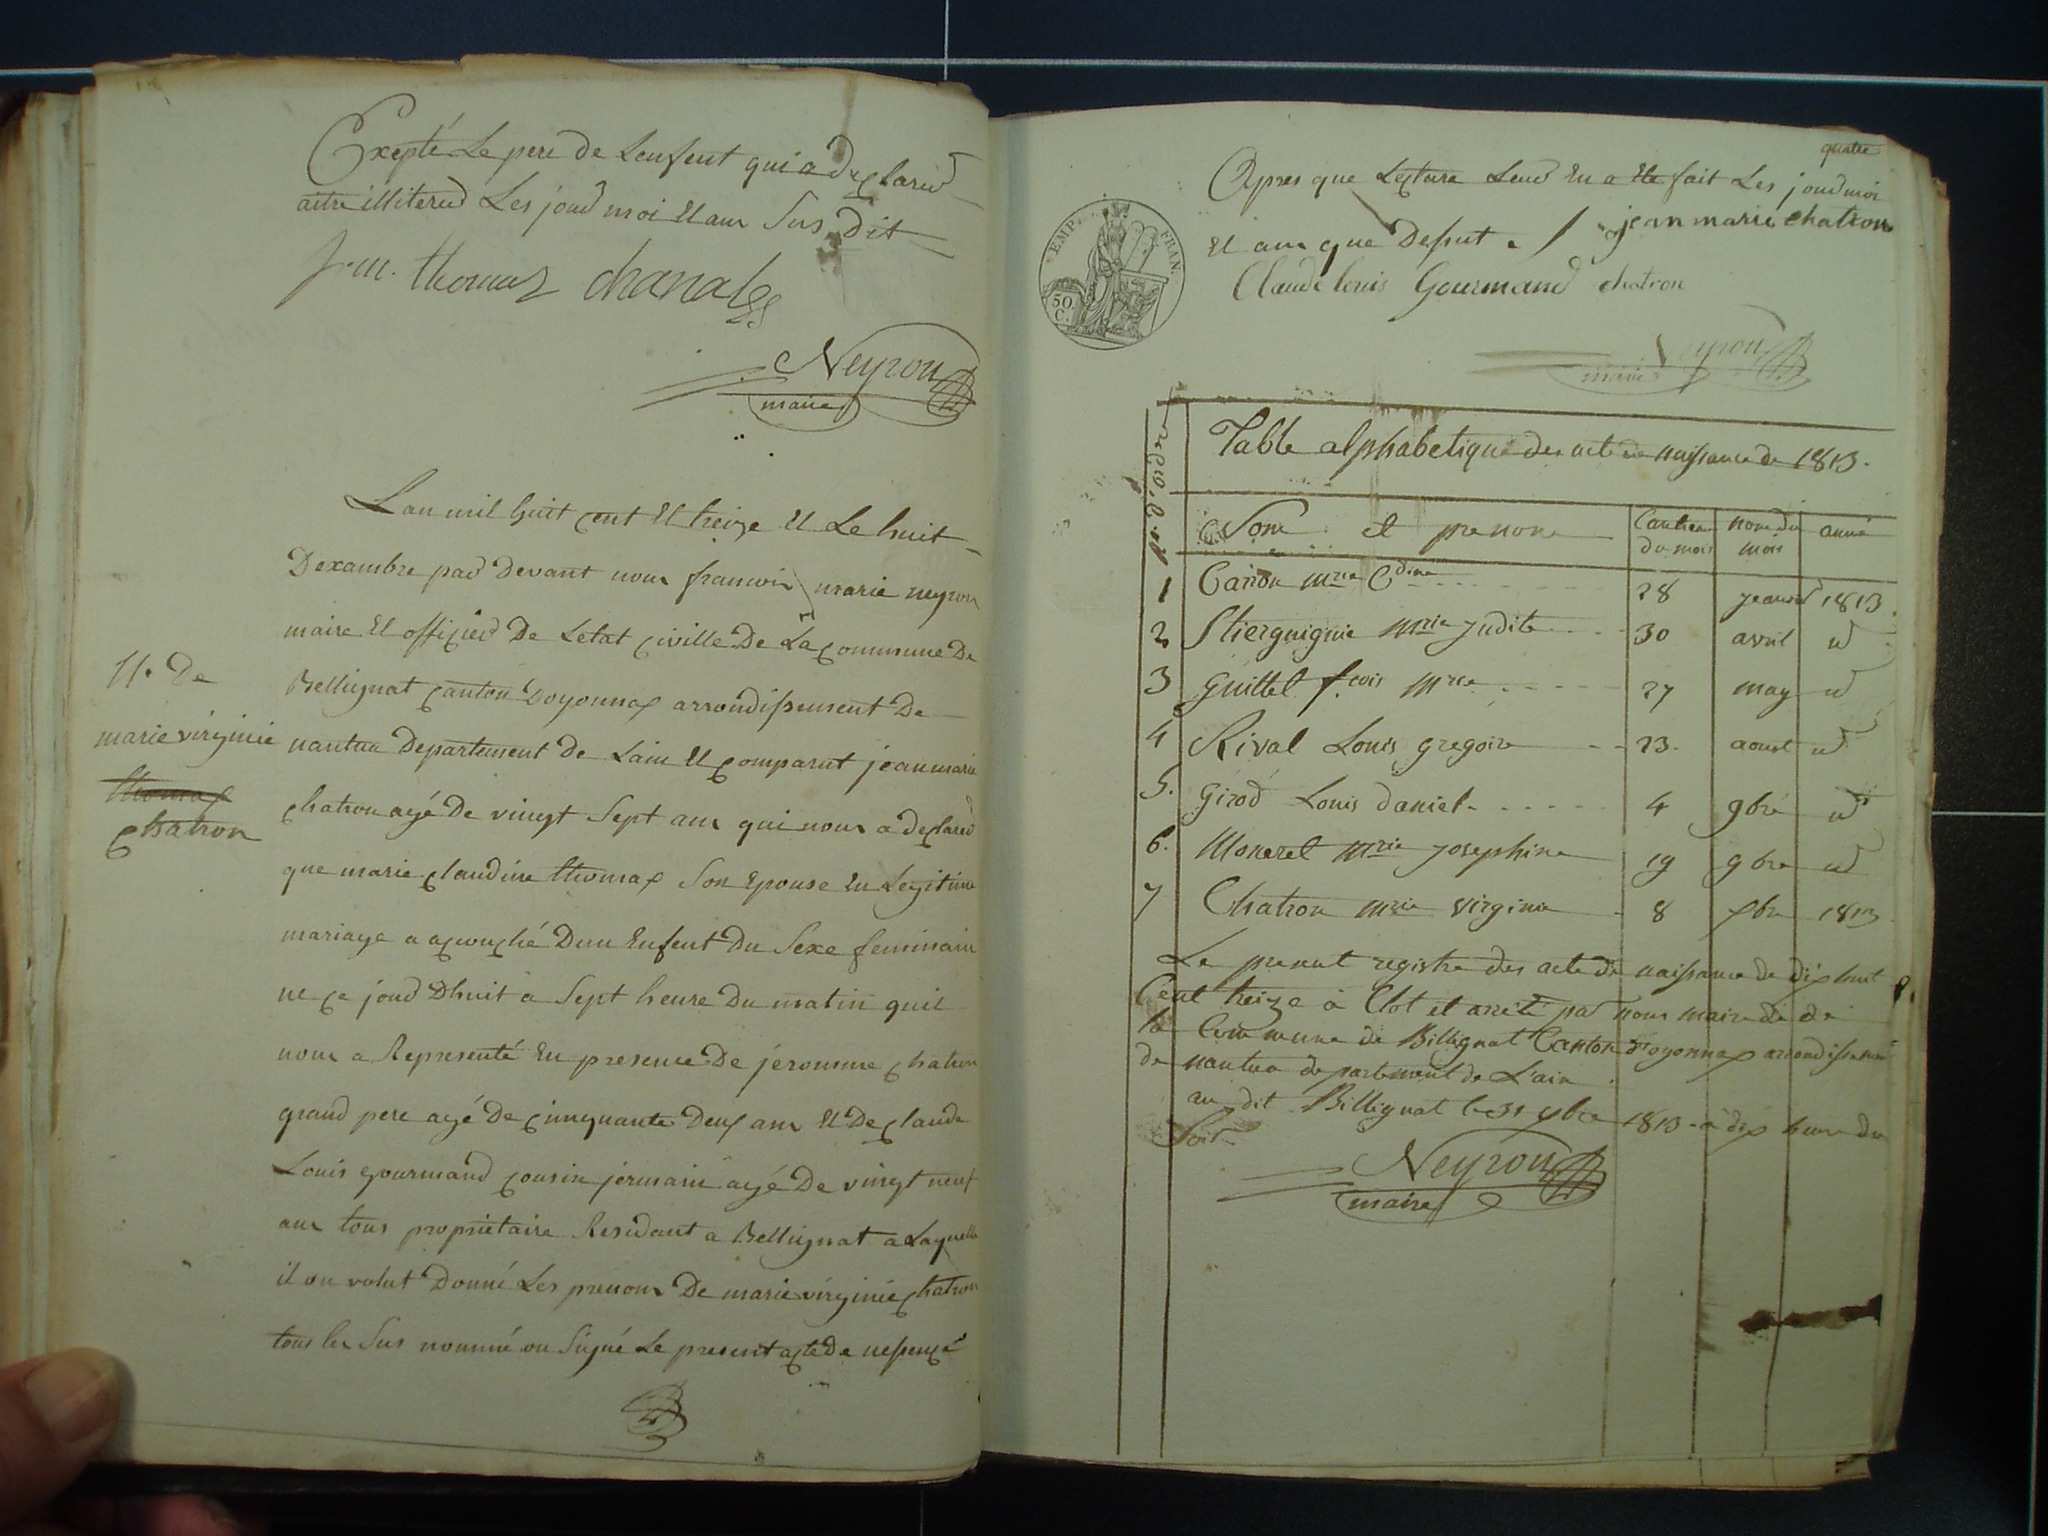 Exepté Le pere de Lenfent qui a declared
aitre illitered Les joud moi et ans Sus dit
thomas chanal
Neyron
maire
L'an mil huit cent et treize et Le huit
Dexambre pad devant nous francois marie neyron
maire et officied De Letat civille De La commune De
Bellignat canton Doyonnax arrondissement De
nantua Departement de Lain et comparut jean marie
chatron agé De vingt Sept ans qui nous a declared
que marie claudine thomas Son Epouse En Legitime
mariage a acouché Dun Enfent Du Sexe feminain
né ce joud Dhuit a Sept heure Du matin quil
nous a Representé En presence De jeromme chatron
grand pere agé De cinquante Deux ans et De claude
Louis gourmand cousin jermain agé De vingt neuf
ans tous proprietaire Residant a Bellignat a Laquelle
il on volut Donné Les prenons De marie virginie chatron
tous les Sus nommé on Signé Le present acte De nessence
De
marie virginie
thomas
chatron
quatre
Apres que Lecture Leud En a Ete fait Les joud moi
et ans que Desut jean marie chatron
Claude louis Gourmand chatron
EMP. FRAN.
50 C.
Neyron
maire
Table alphabetique des acte de naissance de 1813.
Nom et prenom
Cantieme du mois
nom du mois
année
1 Carron mrie Cdine 28 jeanvid 1813
2 mrie judite 30 avril id
3 Guittet fcois mrie 27 may id
4 Rival Louis gregoire 23. aoust id
5. Girod Louis daniel 4 9bre id
6. Moneret mrie josephine 19 9bre id
7 Chatron mrie virginie 8 xbre 1813
Le presnt registre des acte de naissance de dix huit
Cent treize a Clot et arrêté pad nous maire de de
la Commune de Billignat Canton d'oyonnax arrondissement
de nantua departement de L'ain
au dit Billignat le 31 xbre 1813 a dix heure du
Soir
Neyron
maire